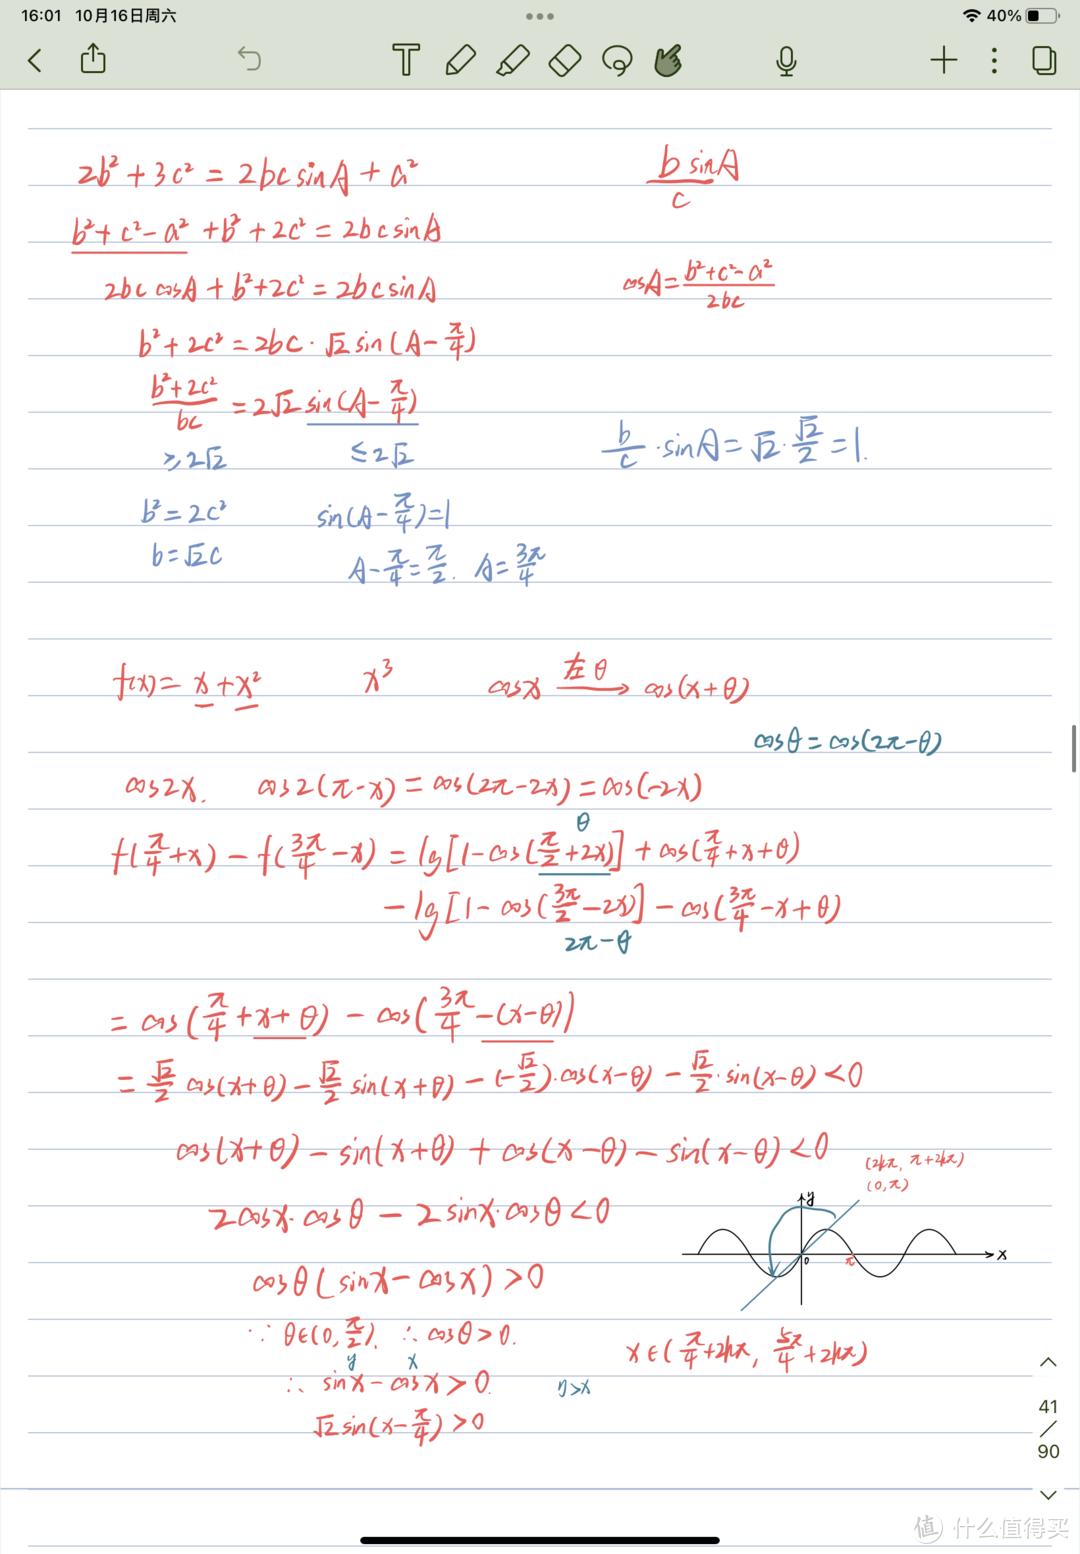 16:01 10月16日周六 40%
2b²+3c²=2bcsinA+a²
bsinA/c
b²+c²-a²+b²+2c²=2bcsinA
2bccosA+b²+2c²=2bcsinA
cosA=(b²+c²-a²)/2bc
b²+2c²=2bc·√2sin(A-π/4)
(b²+2c²)/bc=2√2sin(A-π/4)
≥2√2 ≤2√2
b/c·sinA=√2·√2/2=1.
b²=2c² sin(A-π/4)=1
b=√2c A-π/4=π/2. A=3π/4
f(x)=x+x² x³ cosx 左θ→ cos(x+θ)
cosθ=cos(2π-θ)
cos2x. cos2(π-x)=cos(2π-2x)=cos(-2x)
θ
f(π/4+x)-f(3π/4-x)=lg[1-cos(π/2+2x)]+cos(π/4+x+θ)
-lg[1-cos(3π/2-2x)]-cos(3π/4-x+θ)
2π-θ
=cos(π/4+x+θ)-cos(3π/4-(x-θ))
=√2/2cos(x+θ)-√2/2sin(x+θ)-(-√2/2)·cos(x-θ)-√2/2·sin(x-θ)<0
cos(x+θ)-sin(x+θ)+cos(x-θ)-sin(x-θ)<0
(2kπ, π+2kπ)
(0,π)
2cosx·cosθ-2sinx·cosθ<0
y
x
0
π
cosθ(sinx-cosx)>0
∵θ∈(0,π/2). ∴cosθ>0.
x∈(π/4+2kπ, 5π/4+2kπ)
y x
∴sinx-cosx>0. y>x
√2sin(x-π/4)>0
41
/
90
值 什么值得买